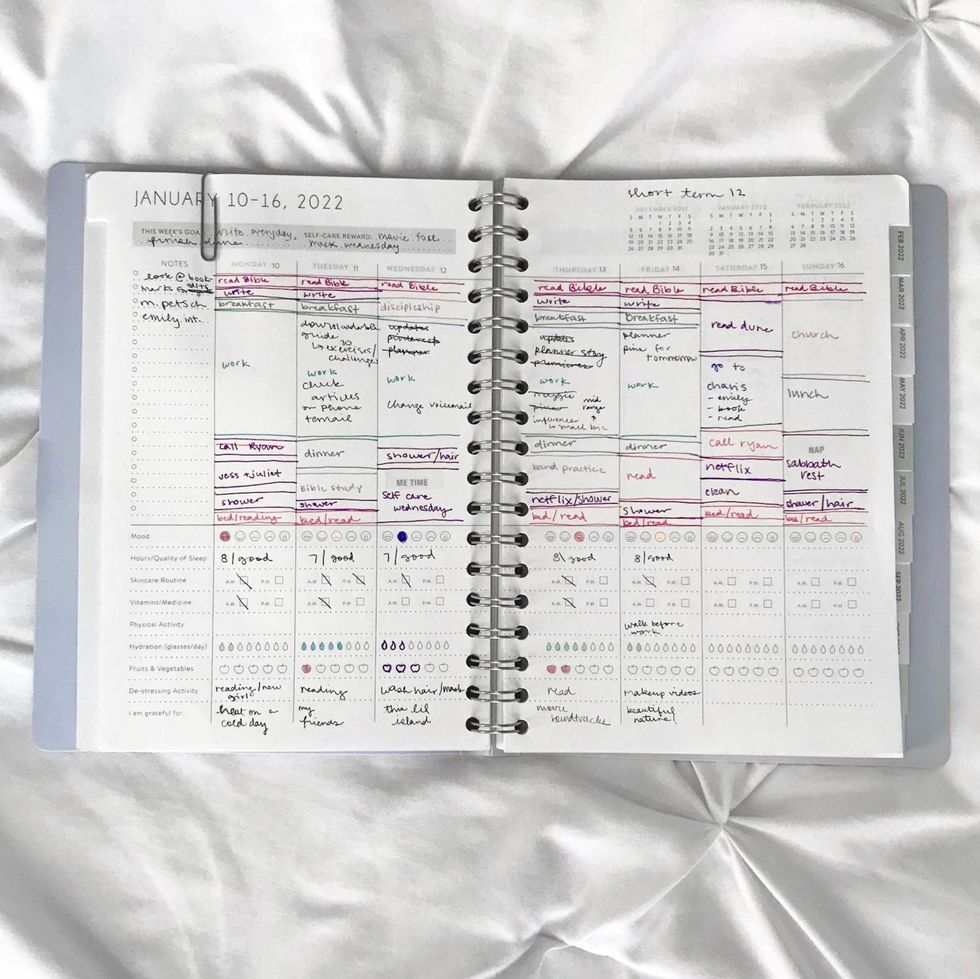 JANUARY 10-16, 2022
THIS WEEK'S GOAL: write everyday,
finish dune
SELF-CARE REWARD: movie fast...
mask wednesday
NOTES
look @ book
edits
m. petsch
emily int.
MONDAY 10
read Bible
write
breakfast
work
call Ryan
jess + juliet
shower
bed/reading
TUESDAY 11
read Bible
write
breakfast
downloadable
guide
↳ 30
exercises/
challenges
work
check
articles
on phone
+email
dinner
Bible study
shower
bed/read
WEDNESDAY 12
read Bible
discipleship
updates
pinterest
planner
work
change voicemail
shower/hair
ME TIME
self care
wednesday
Mood
Hours/Quality of Sleep
8/good
7/good
7/good
Skincare Routine
A.M. P.M.
A.M. P.M.
A.M. P.M.
Vitamins/Medicine
A.M. P.M.
A.M. P.M.
A.M. P.M.
Physical Activity
Hydration (glasses/day)
Fruits & Vegetables
De-stressing Activity
reading/new
girl
reading
wash hair/mask
I am grateful for...
heat on a
cold day
my
friends
this lil
island
short term 12
DECEMBER 2021
JANUARY 2022
FEBRUARY 2022
THURSDAY 13
read Bible
write
breakfast
planner stay
work
mid
range
influence
↳ small biz
dinner
band practice
netflix/shower
bed/read
FRIDAY 14
read Bible
write
breakfast
planner
pins for
tomorrow
work
dinner
read
shower
bed/read
SATURDAY 15
read Bible
read dune
go to
charis
- emily
- book
- read
call ryan
netflix
clean
bed/read
SUNDAY 16
read Bible
church
lunch
NAP
sabbath
rest
shower/hair
bed/read
8/good
8/good
A.M. P.M.
A.M. P.M.
A.M. P.M.
A.M. P.M.
A.M. P.M.
A.M. P.M.
A.M. P.M.
A.M. P.M.
walk before
work
read
makeup videos
movie
soundtracks
beautiful
nature!
FEB 2022
MAR 2022
APR 2022
MAY 2022
JUN 2022
JUL 2022
AUG 2022
SEP 2022